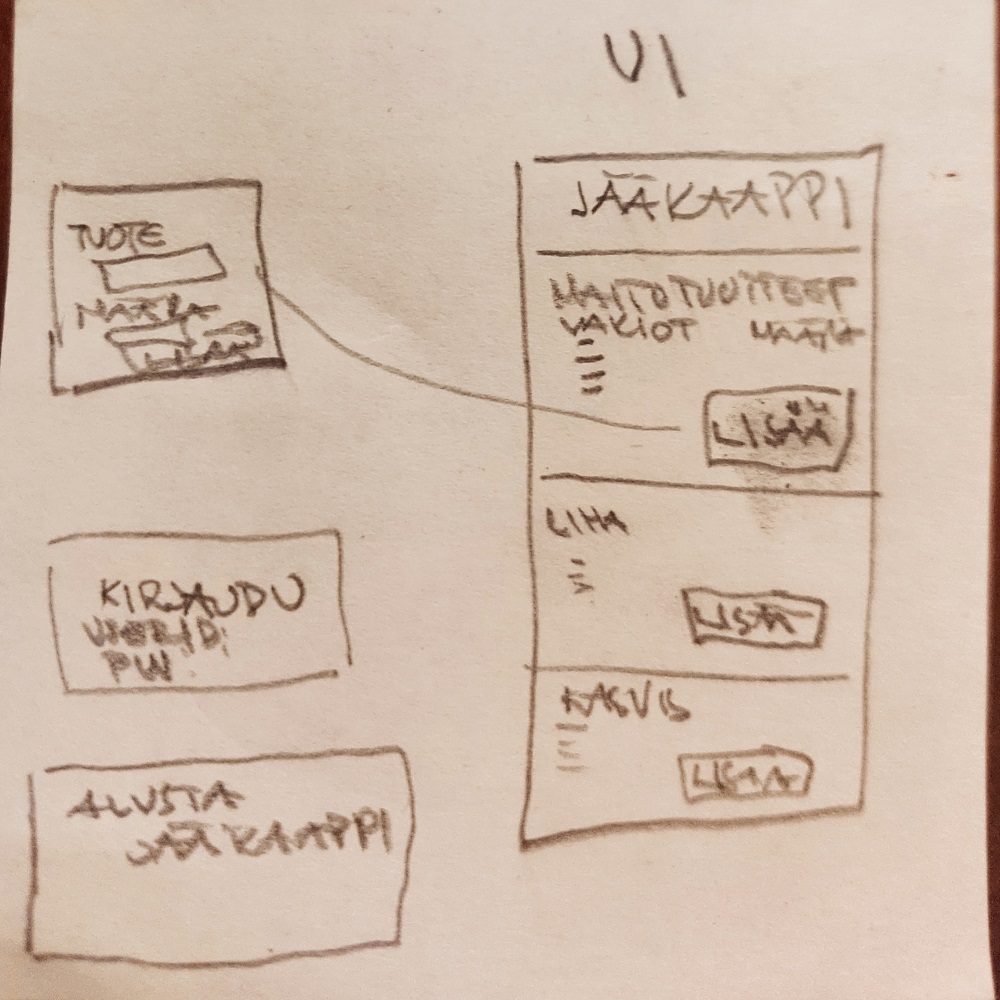 UI
TUOTE
MÄÄRÄ
LISÄÄ
KIRJAUDU
USERID:
PW:
ALUSTA
JÄÄKAAPPI
JÄÄKAAPPI
MAITOTUOTTEET
VAKIOT MÄÄRÄ
LISÄÄ
LIHA
LISÄÄ
KASVIS
LISÄÄ